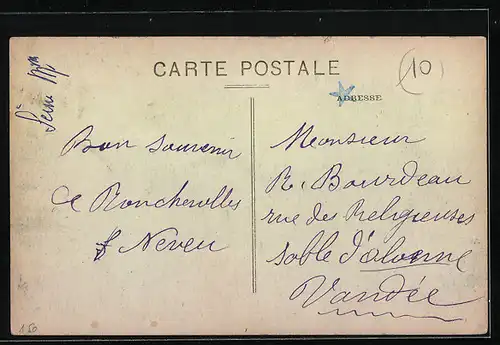 CARTE POSTALE
(10)
ADRESSE
Seine Infre
Bon souvenir
de Roncherolles
Neveu
Monsieur
R. Bourdeau
rue des Religieuses
sable d'alonne
Vandée
1 50